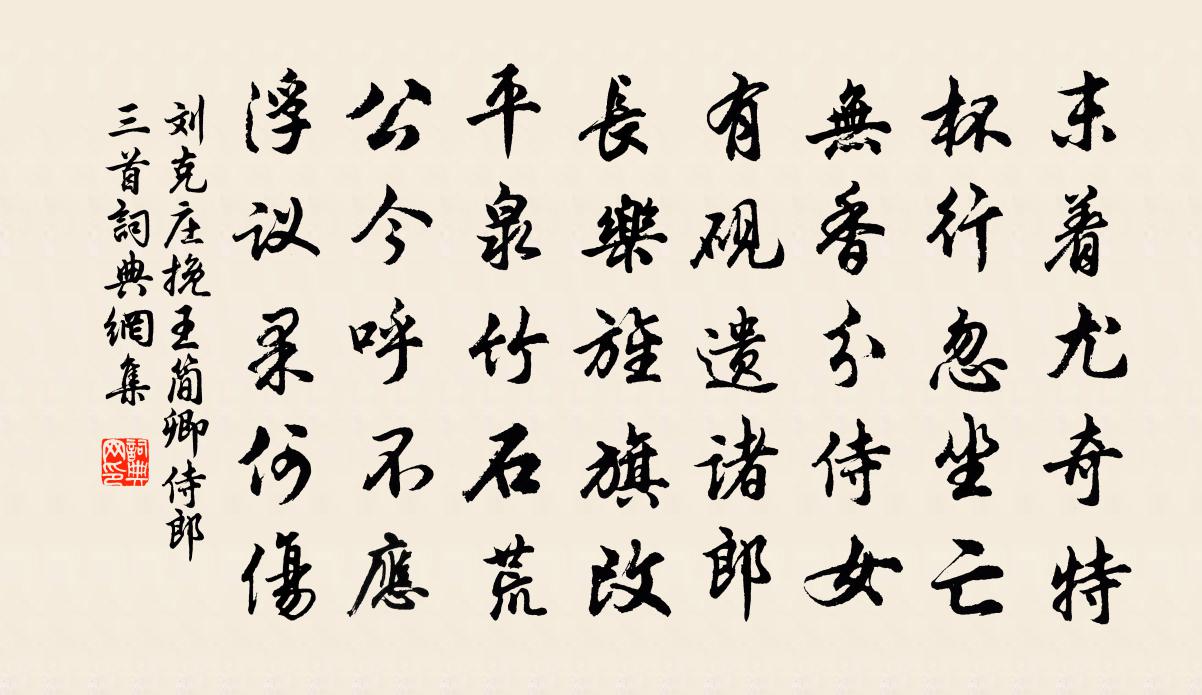 末着尤奇特
杯行忽坐亡
無香分侍女
有硯遗諸郎
長樂旌旗改
平泉竹石荒
公今呼不應
浮议果何傷
刘克庄挽王简卿侍郎
三首詞典網集
詞典网印